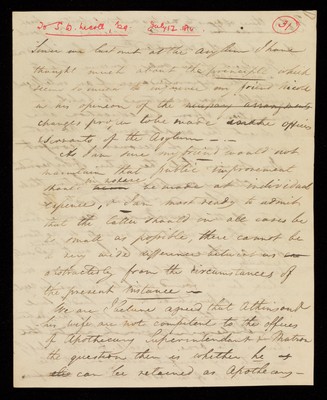 To S. D. Nicoll, Esq July 12
31
Since we last met at the Asylum I have
thought much about the principle, which
seem so much to influence our friend Nicoll
in his opinion of the
changes proposed to be made in the offices
& servants of the Asylum —
As I am sure my friend would not
maintain that public improvement
should never be made at individual
expense, & I am most ready to admit
that the latter should in all cases be
as small as possible, there cannot be
a very wide difference between us
abstractedly from the circumstances of
the present instance —
We are I believe agreed that Atkinson &
his wife are not competent to the offices
of Apothecary Superintendent & Matron
the question then is whether he
can be retained as Apothecary —